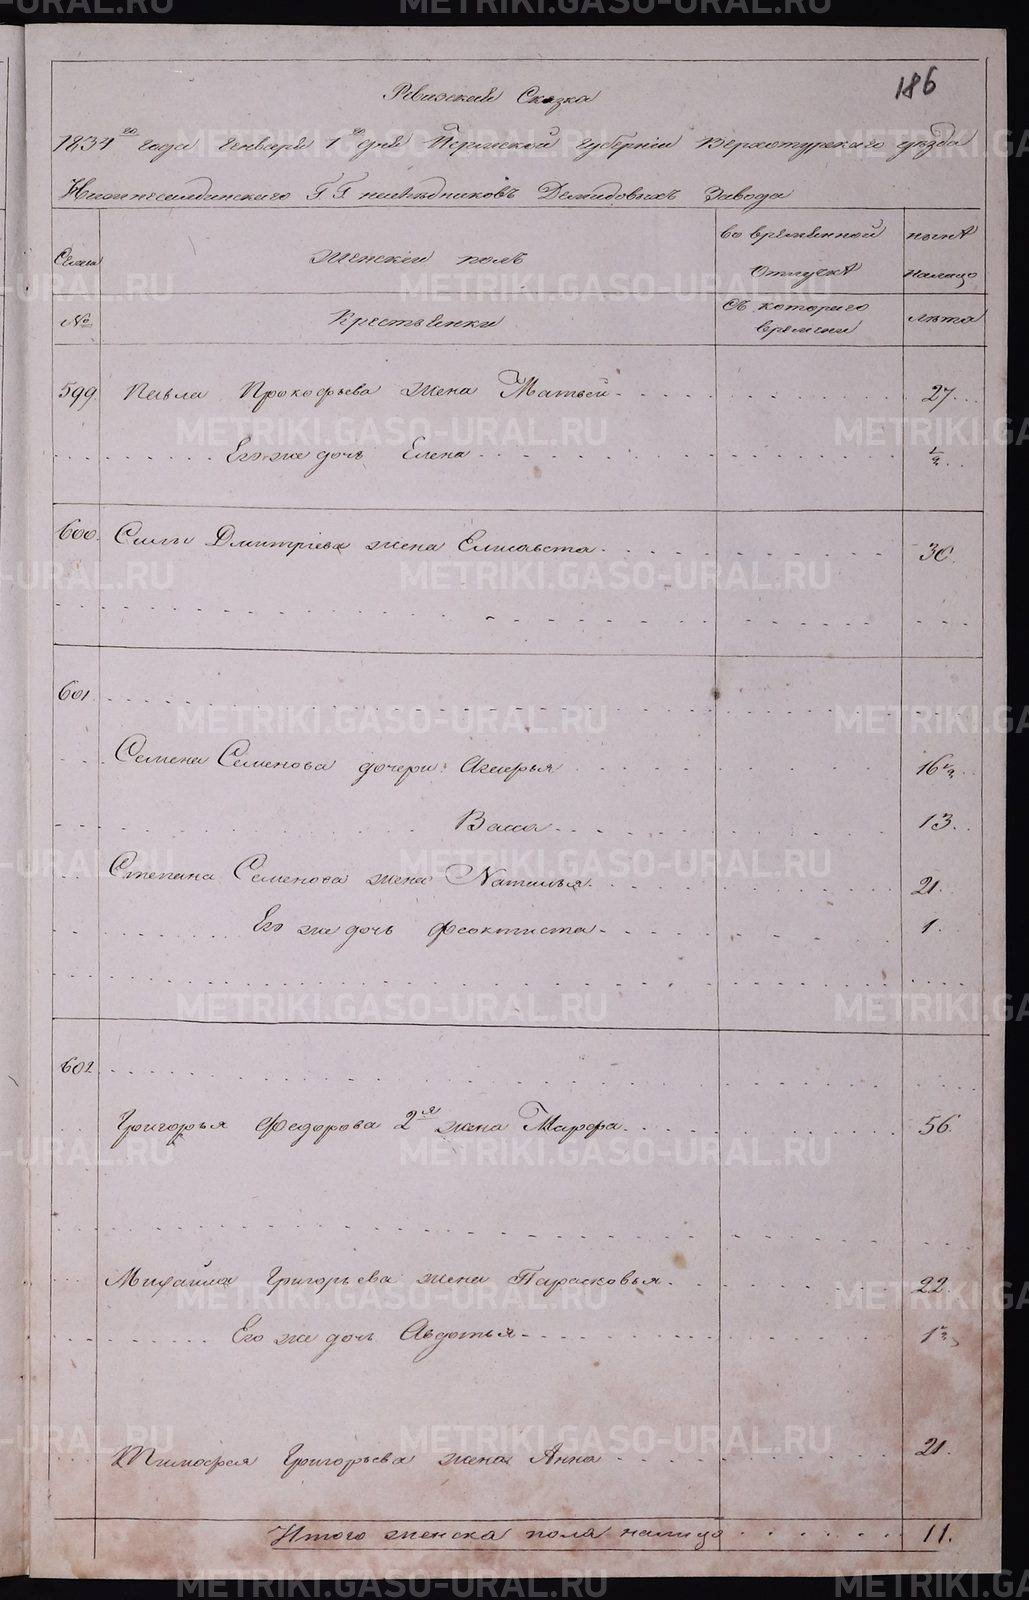 186
Ревизская Сказка
1834го года Генваря 1го дня Пермской Губерніи Верхотурскаго уѣзда
Нижнесалдинскаго Г.Г. наслѣдниковъ Демидовыхъ Завода
Семьи Женскій полъ во временной отлучкѣ нынѣ налицо
№ Крестьянки Съ котораго времени лѣта
599. Павла Прокофьева жена 27.
Его же дочь Елена 1/2
600. Дмитріева жена Елисавета 30.
601.
Семена Семенова дочери: 16 1/2
Васса 13.
Степана Семенова жена Наталья 21.
Его же дочь Феоктиста 1.
602
Григорья Федорова 2я жена Марфа 56.
Михайла Григорьева жена Парасковья 22.
Его же дочь Авдотья 1/2
Тимофея Григорьева жена Анна 21.
Итого женска пола налицо 11.
METRIKI.GASO-URAL.RU